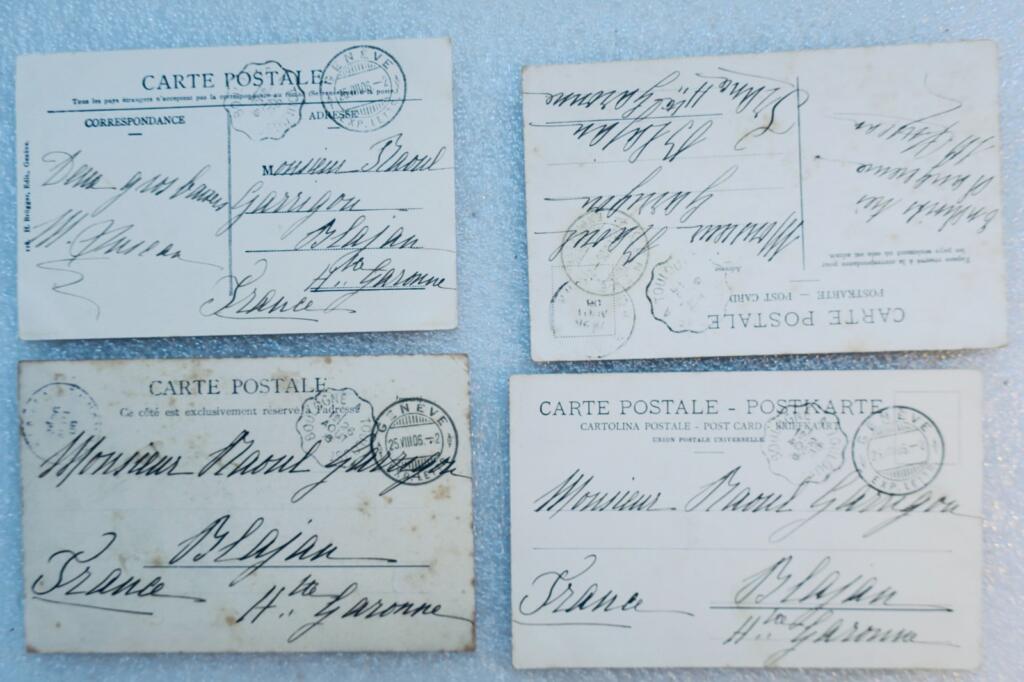 CARTE POSTALE
Tous les pays étrangers n'acceptent pas la correspondance au
CORRESPONDANCE
ADRESSE
GENÈVE
EXP. LET.
H. Brügger, Edit., Genève.
Deux gros baisers
M.
Monsieur Raoul
Garrigou
Blajan
Hte Garonne
France
CARTE POSTALE
POSTKARTE — POST CARD
Espace réservé à la correspondance pour
les pays seulement où cela est admis.
Adresse
Monsieur Raoul
Garrigou
Blajan
Hte Garonne
CARTE POSTALE
Ce côté est exclusivement réservé à l'adresse
GENÈVE
25.VIII.06.-2
Monsieur Raoul Garrigou
Blajan
France
Hte Garonne
CARTE POSTALE - POSTKARTE
CARTOLINA POSTALE - POST CARD - BRIEFKAART
UNION POSTALE UNIVERSELLE
GENÈVE
EXP. LET.
Monsieur Raoul Garrigou
France
Blajan
Hte Garonne